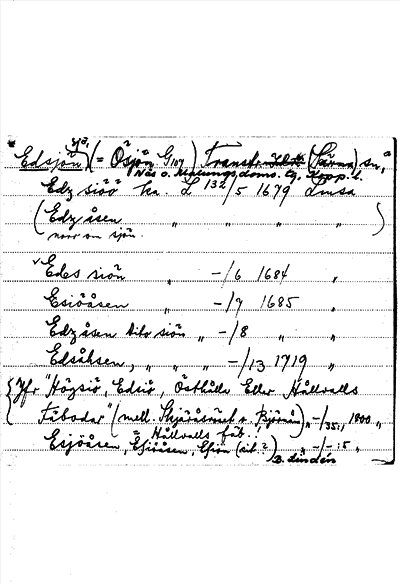 sjö,
Edsjön (= Ösjön G107) Transtr. (Särna) sn,
Näs o. Malungs doms. tg. Kopp. l.
Edz siöö ka. L 132/5 1679 Lmsa
(Edzåsen " " " " )
norr om sjön.
Edes siön " -/6 1684 "
Esiöåsen " -/7 1685 "
Edzåsen bilo siön " -/8 " "
Edsåhsen, " " " -/13 1719 "
Jfr "Högsiö, Edsiö, Östhålla Eller Hållvalls
Fäbodar" (mell. Skjäråsvåhl o. Björnån) " -/35:, 1800 "
Hållvalls fäb.,
Esjöåsen, Esiöåsen, Esiön (cit.?) " -/-:5 "
B. Lindén